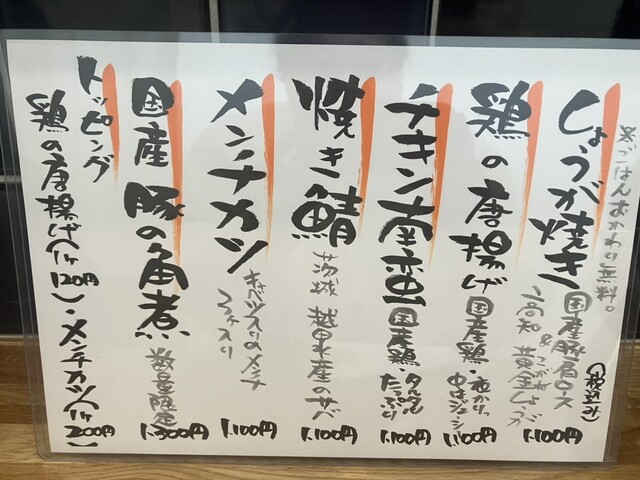 ※ごはんおかわり無料。
(税込み)
しょうが焼き
国産豚肩ロース
&こがね
高知 黄金しょうが
1.100円
鶏の唐揚げ
国産鶏・衣かりっ
中はジューシー
1.100円
チキン南蛮
国産鶏・タルタル
たっぷり
1.100円
焼き鯖
茨城 越田水産のサバ
1.100円
メンチカツ
キャベツ入りのメンチ
2ヶ入り
1.100円
国産 豚の角煮
数量限定
1.300円
トッピング
鶏の唐揚げ(1ヶ120円)・メンチカツ(1ヶ200円)